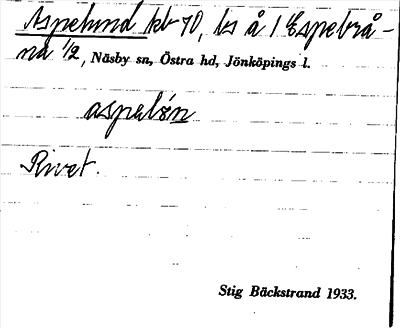 Aspelund kb 70, ls å 1 Espebrå-
na 1/2, Näsby sn, Östra hd, Jönköpings l.
aspəlún
Rivet.
Stig Bäckstrand 1933.